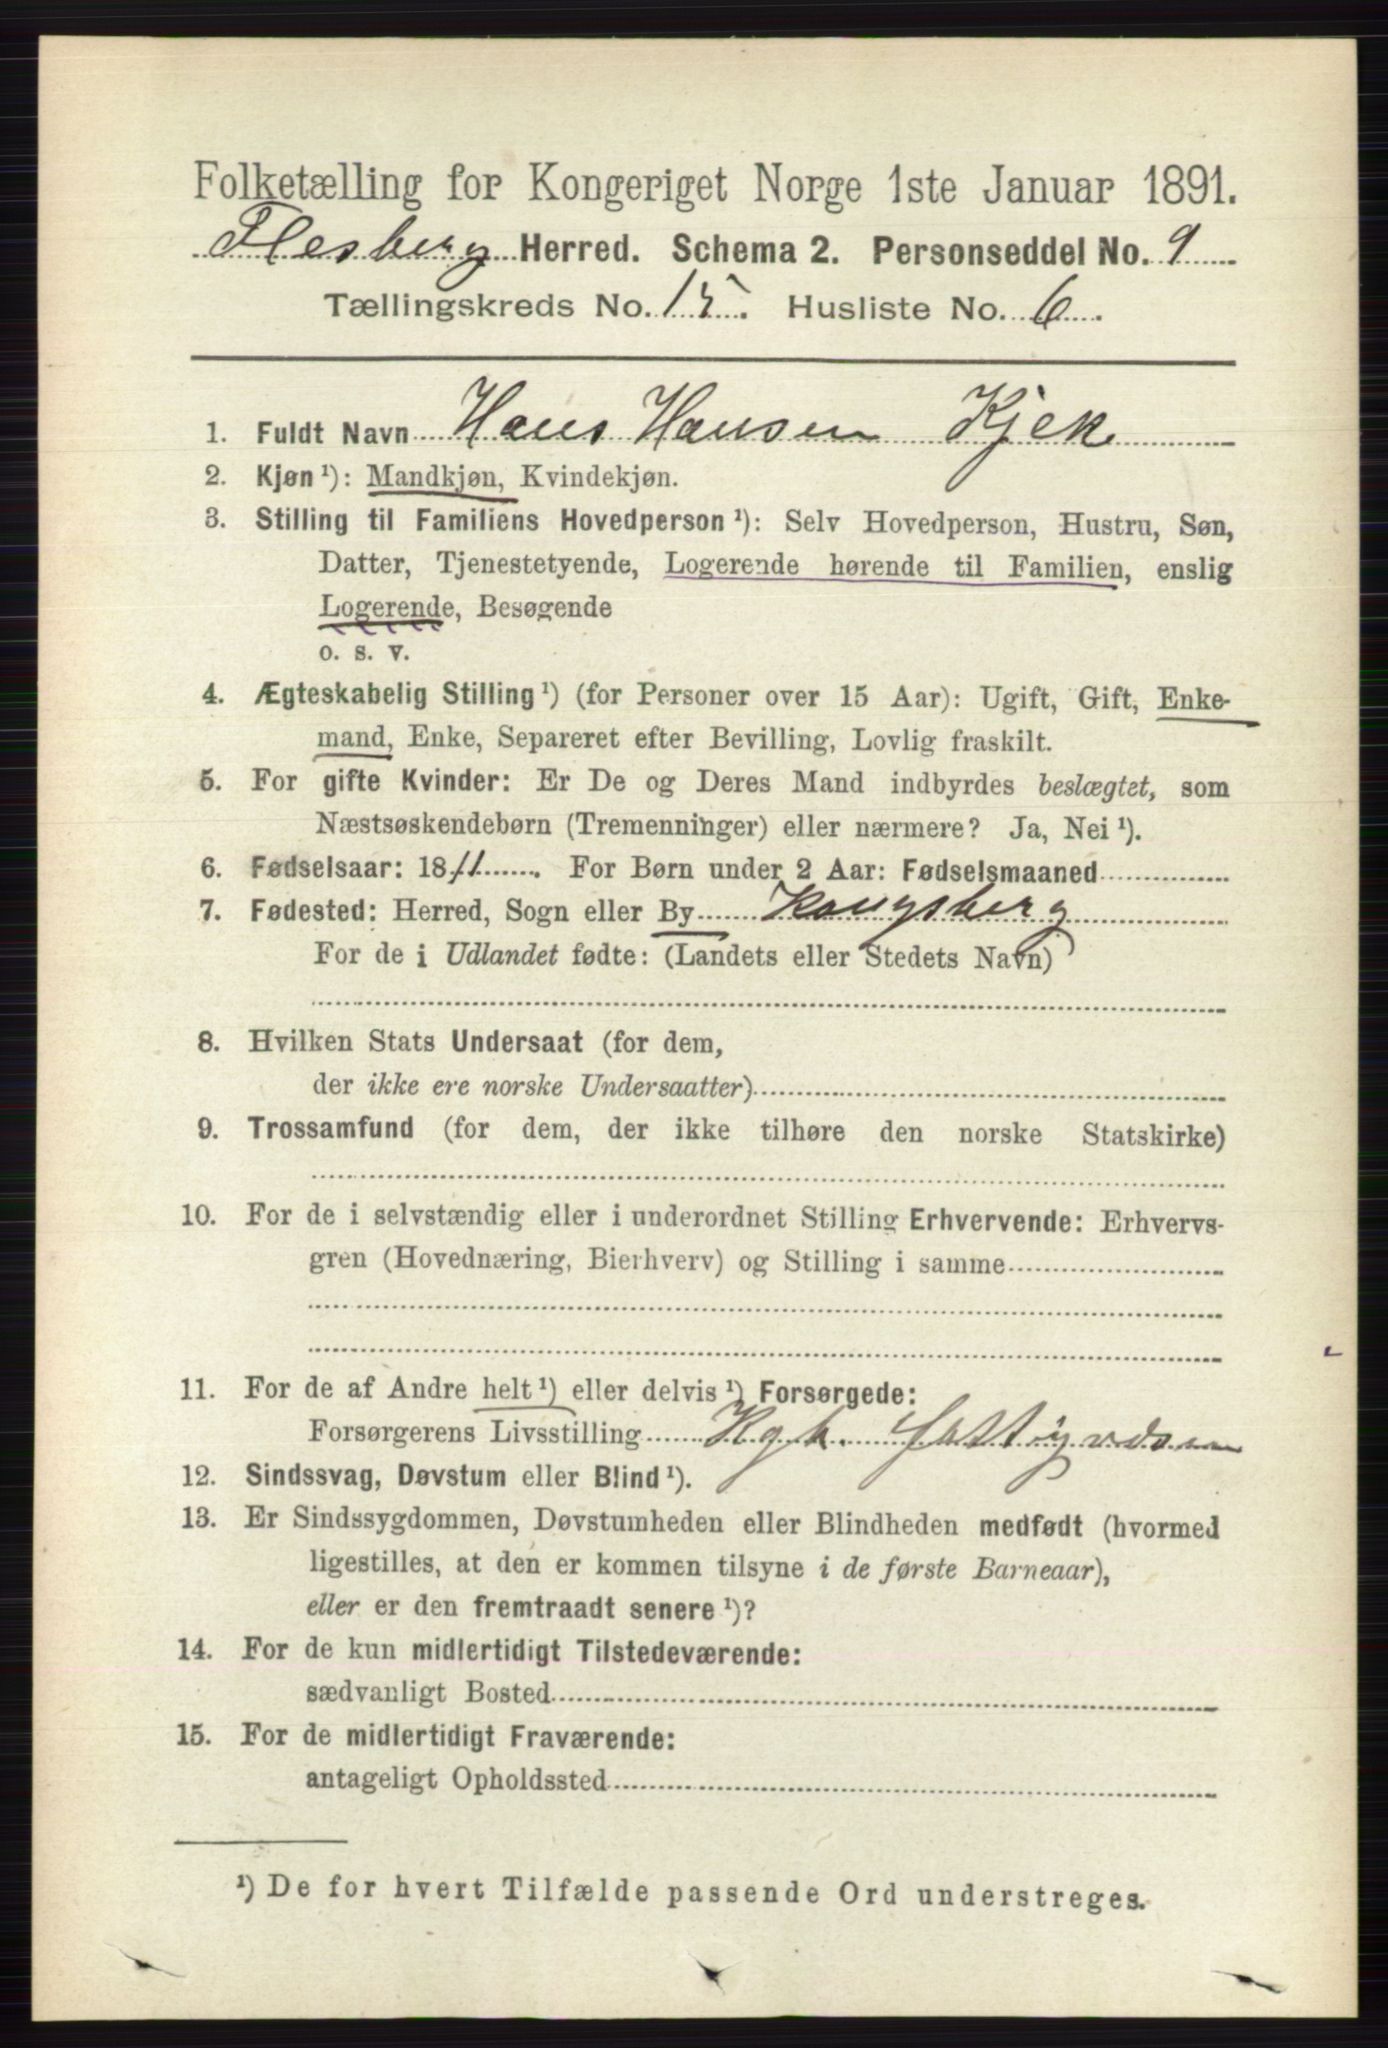 Folketælling for Kongeriget Norge 1ste Januar 1891.
Flesberg Herred. Schema 2. Personseddel No. 9
Tællingskreds No. 15. Husliste No. 6.
1. Fuldt Navn Hans Hansen Kjek
2. Kjøn ¹): Mandkjøn, Kvindekjøn.
3. Stilling til Familiens Hovedperson ¹): Selv Hovedperson, Hustru, Søn,
Datter, Tjenestetyende, Logerende hørende til Familien, enslig
Logerende, Besøgende
o. s. v.
4. Ægteskabelig Stilling ¹) (for Personer over 15 Aar): Ugift, Gift, Enke-
mand, Enke, Separeret efter Bevilling, Lovlig fraskilt.
5. For gifte Kvinder: Er De og Deres Mand indbyrdes beslægtet, som
Næstsøskendebørn (Tremenninger) eller nærmere? Ja, Nei ¹).
6. Fødselsaar: 1811. For Børn under 2 Aar: Fødselsmaaned
7. Fødested: Herred, Sogn eller By Kongsberg
For de i Udlandet fødte: (Landets eller Stedets Navn)
8. Hvilken Stats Undersaat (for dem,
der ikke ere norske Undersaatter)
9. Trossamfund (for dem, der ikke tilhøre den norske Statskirke)
10. For de i selvstændig eller i underordnet Stilling Erhvervende: Erhvervs-
gren (Hovednæring, Bierhverv) og Stilling i samme
11. For de af Andre helt ¹) eller delvis ¹) Forsørgede:
Forsørgerens Livsstilling Kgb.
12. Sindssvag, Døvstum eller Blind ¹).
13. Er Sindssygdommen, Døvstumheden eller Blindheden medfødt (hvormed
ligestilles, at den er kommen tilsyne i de første Barneaar),
eller er den fremtraadt senere ¹)?
14. For de kun midlertidigt Tilstedeværende:
sædvanligt Bosted
15. For de midlertidigt Fraværende:
antageligt Opholdssted
¹) De for hvert Tilfælde passende Ord understreges.